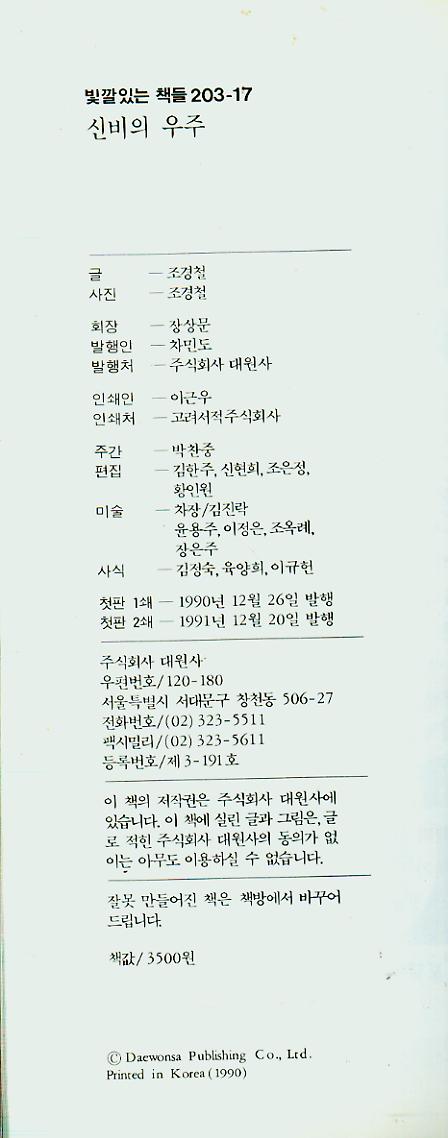 빛깔있는 책들 203-17
신비의 우주
글 — 조경철
사진 — 조경철
회장 — 장상문
발행인 — 차민도
발행처 — 주식회사 대원사
인쇄인 — 이근우
인쇄처 — 고려서적주식회사
주간 — 박찬중
편집 — 김한주, 신현희, 조은정,
황인원
미술 — 차장/김진락
윤용주, 이정은, 조옥례,
장은주
사식 — 김정숙, 육양희, 이규헌
첫판 1쇄 — 1990년 12월 26일 발행
첫판 2쇄 — 1991년 12월 20일 발행
주식회사 대원사
우편번호/120-180
서울특별시 서대문구 창천동 506-27
전화번호/(02) 323-5511
팩시밀리/(02) 323-5611
등록번호/제 3-191호
이 책의 저작권은 주식회사 대원사에
있습니다. 이 책에 실린 글과 그림은, 글
로 적힌 주식회사 대원사의 동의가 없
이는 아무도 이용하실 수 없습니다.
잘못 만들어진 책은 책방에서 바꾸어
드립니다.
책값/ 3500원
© Daewonsa Publishing Co., Ltd.
Printed in Korea (1990)